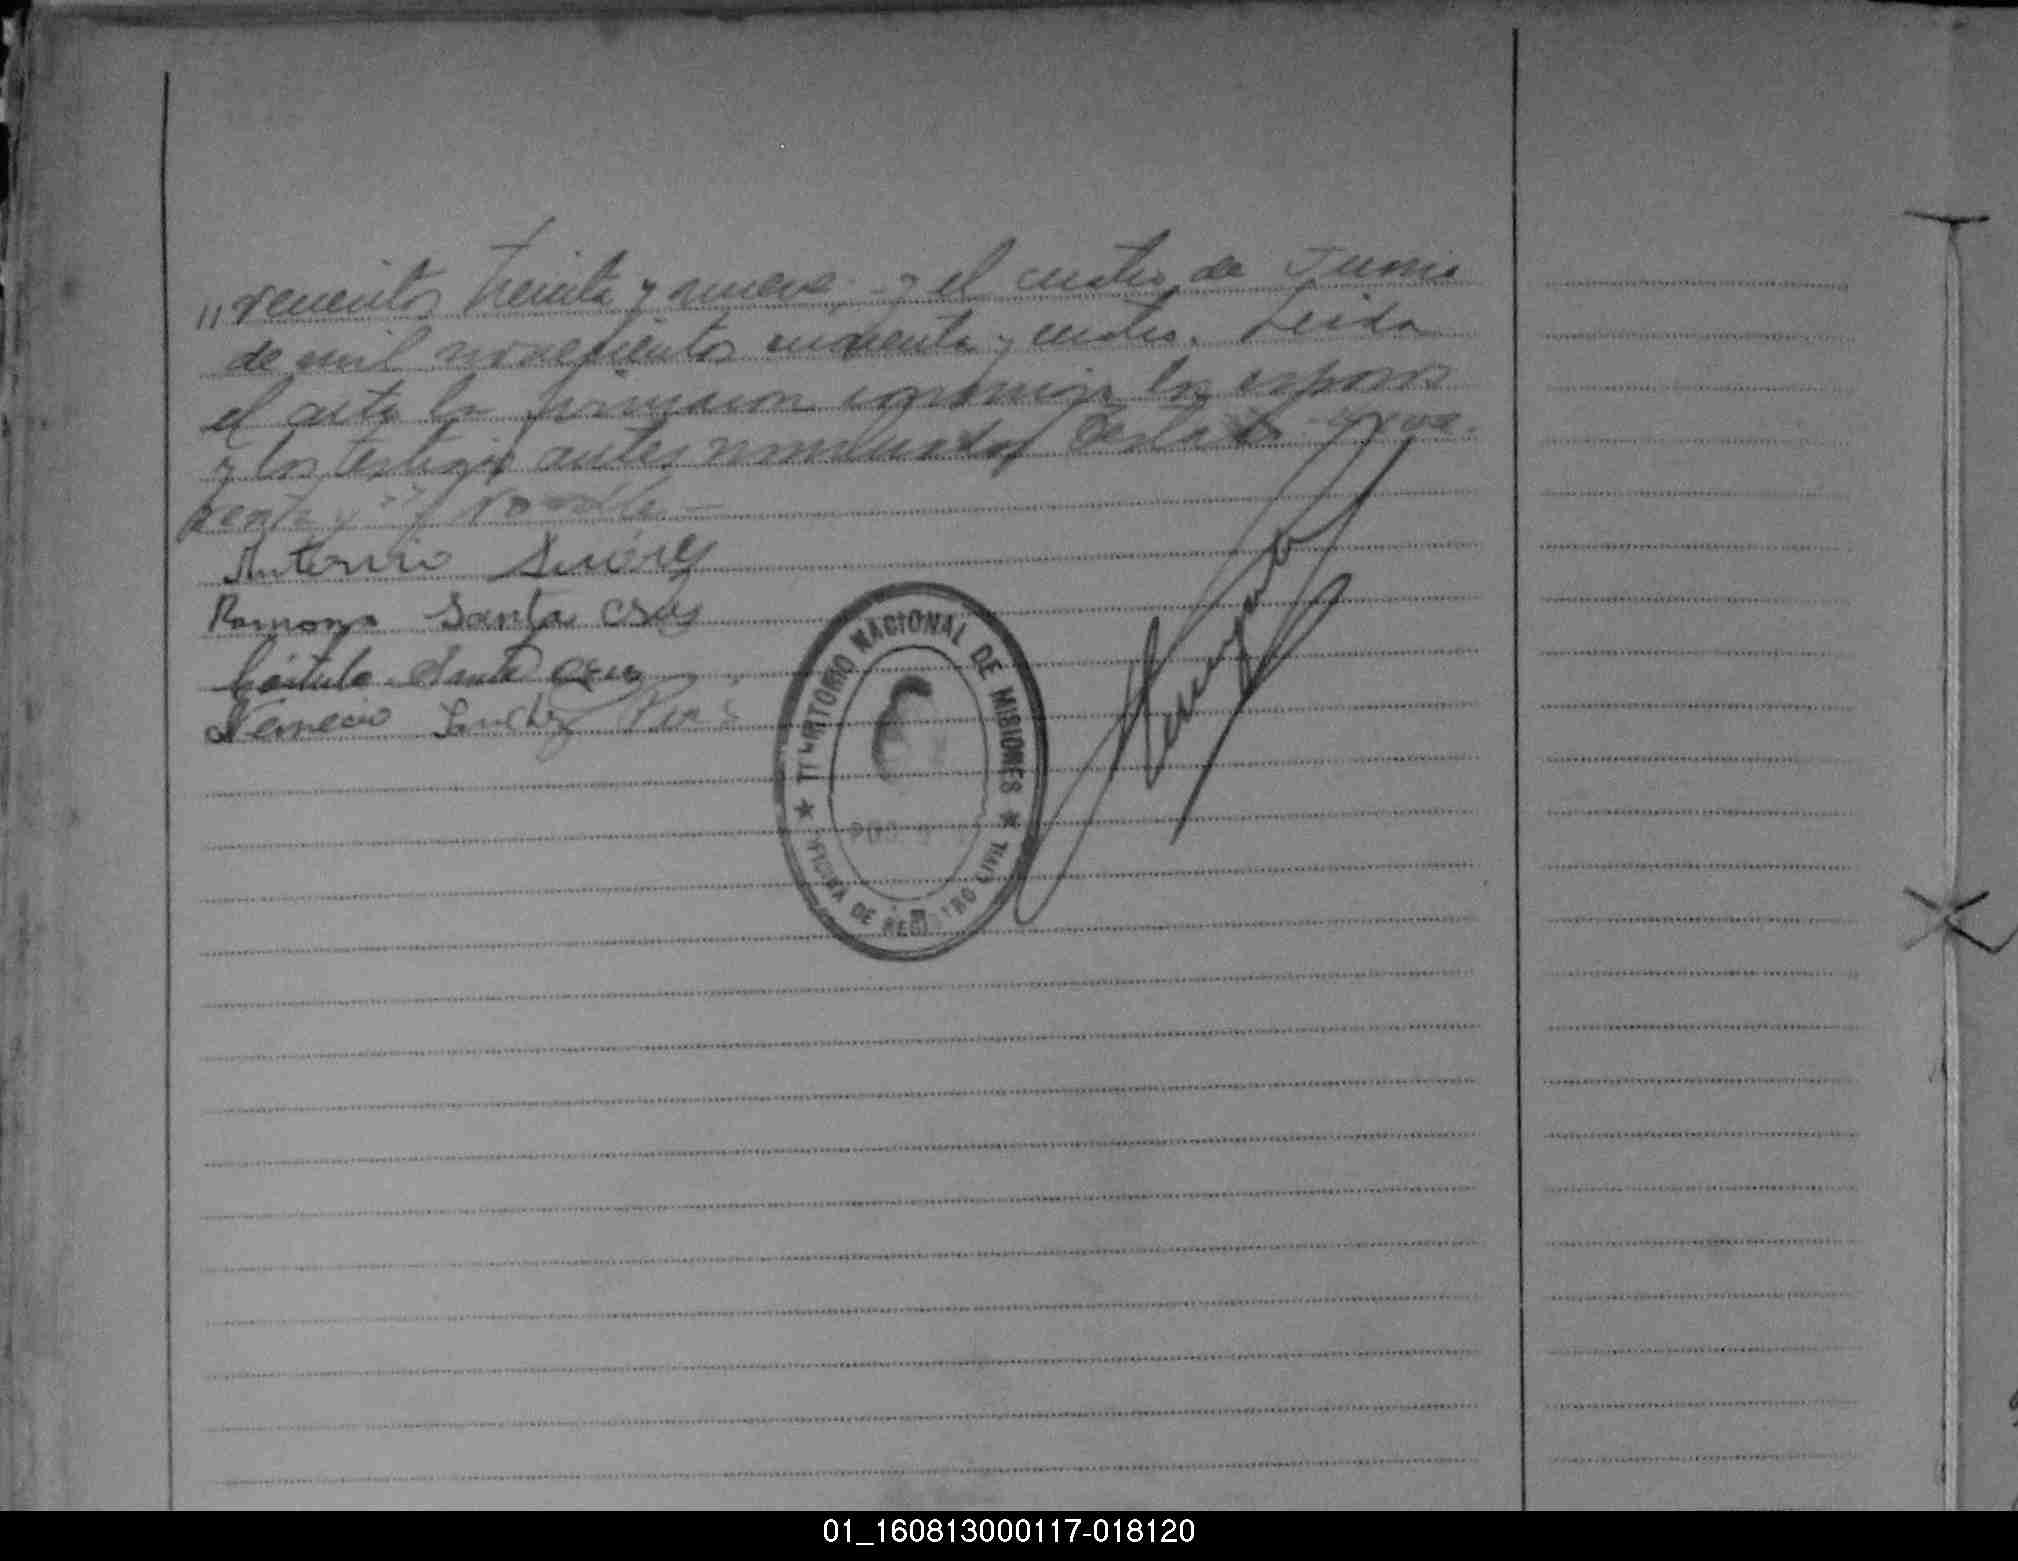 "vecientos treinta y nueve. - y el cuatro de Junio
de mil novecientos cuarenta y cuatro. Leida
el acta la firmaron conmigo los esposos
y los testigos antes nombrados
Antonio Suárez
Ramona Santa Cruz
Cástulo Santa Cruz
Nemecio
TERRITORIO NACIONAL DE MISIONES
OFICINA DE REGISTRO CIVIL
01_160813000117-018120